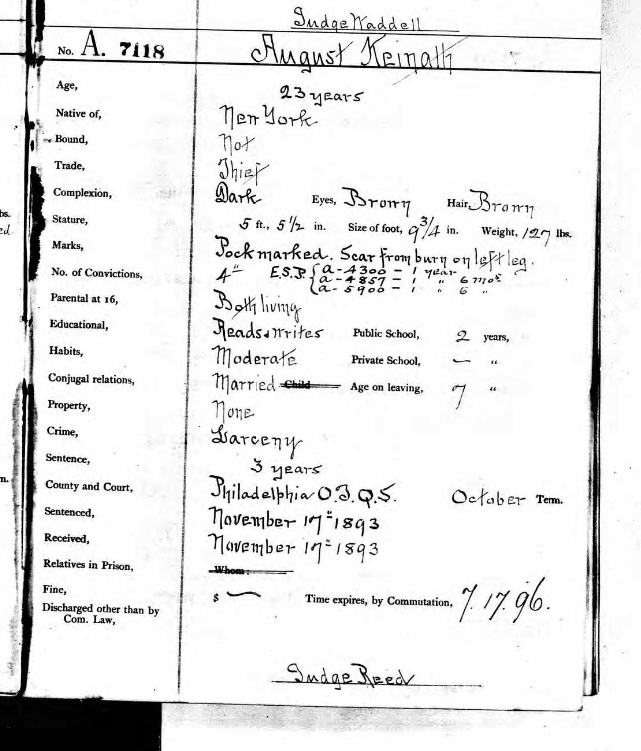 Judge Waddell
No. A. 7118 August Keinath
Age, 23 years
Native of, New York
Bound, Not
Trade, Thief
Complexion, Dark Eyes, Brown Hair, Brown
Stature, 5 ft., 5 1/2 in. Size of foot, 9 3/4 in. Weight, 127 lbs.
Marks, Pock marked. Scar from burn on left leg.
No. of Convictions, 4" E.S.P. { a-4300 - 1 year
{ a-4857 - 1 " 6 mos
{ a-5900 - 1 " 6 "
Parental at 16, Both living
Educational, Reads & writes Public School, 2 years,
Habits, Moderate Private School, — "
Conjugal relations, Married Child Age on leaving, 7 "
Property, None
Crime, Larceny
Sentence, 3 years
County and Court, Philadelphia O.T.Q.S. October Term.
Sentenced, November 17" 1893
Received, November 17" 1893
Relatives in Prison, Whom:
Fine, $ — Time expires, by Commutation, 7.17.96.
Discharged other than by
Com. Law,
Judge Reed
bs.
ed
m.